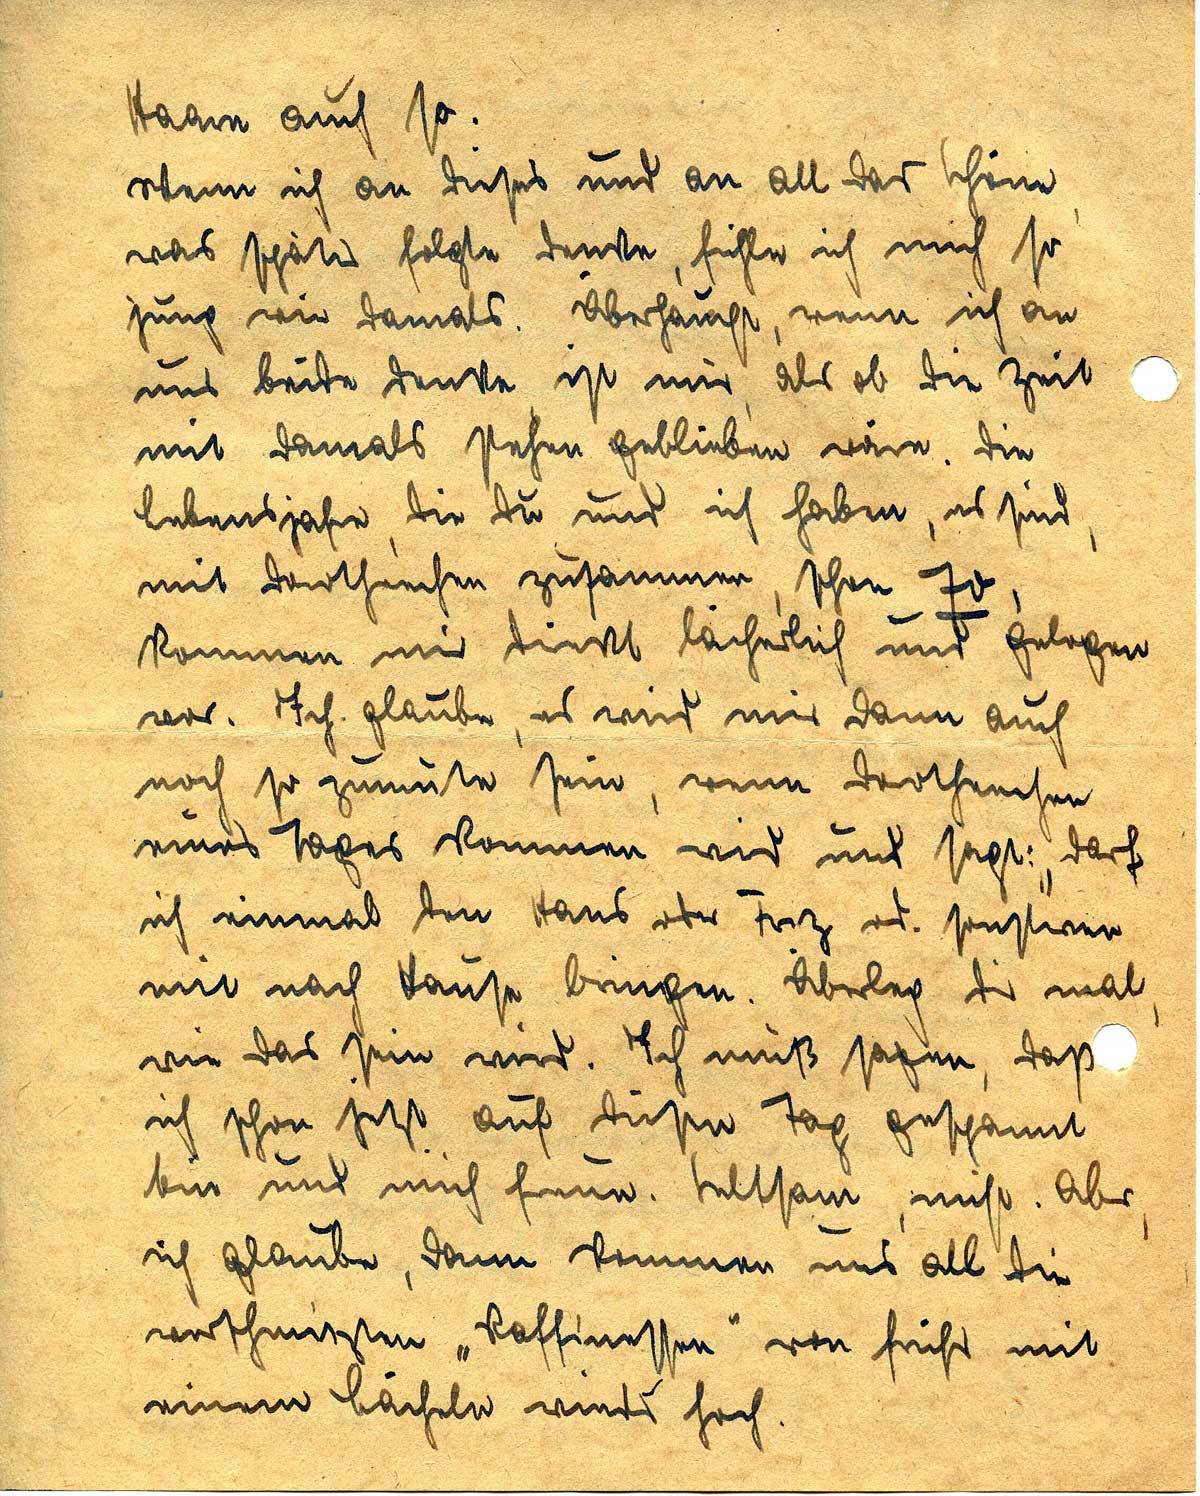 Haare auch so.
Wenn ich an dieses und an all das Schöne,
was später folgte denke, fühle ich mich so
jung wie damals. Überhaupt, wenn ich an
uns beide denke, ist mir, als ob die Zeit
mit damals stehen geblieben wäre. Die
Lebensjahre, die du und ich haben, es sind,
mit Dorothenchen zusammen, schon 70,
kommen mir direkt lächerlich und gelogen
vor. Ich glaube, es wird mir dann auch
noch so zumute sein, wenn Dorothenchen
eines Tages kommen wird und sagt: „Darf
ich einmal den Hans oder Fritz od. sonstwen
mit nach Hause bringen. Überleg dir mal,
wie das sein wird. Ich muß sagen, daß
ich schon jetzt auf diesen Tag gespannt
bin und mich freue. Seltsam, nicht. Aber,
ich glaube, dann kommen uns all die
verschmitzten „Raffinessen" von früher mit
einem Lächeln wieder hoch.